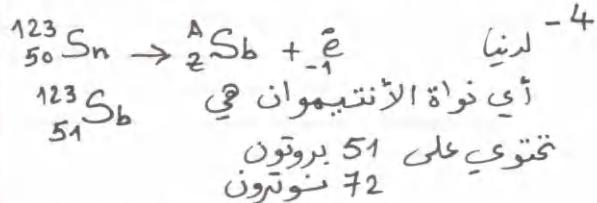 4- لدينا ¹²³₅₀Sn → ᴬ_ZSb + ⁰₋₁e
أي نواة الأنتيموان هي ¹²³₅₁Sb
تحتوي على 51 بروتون
72 نوترون